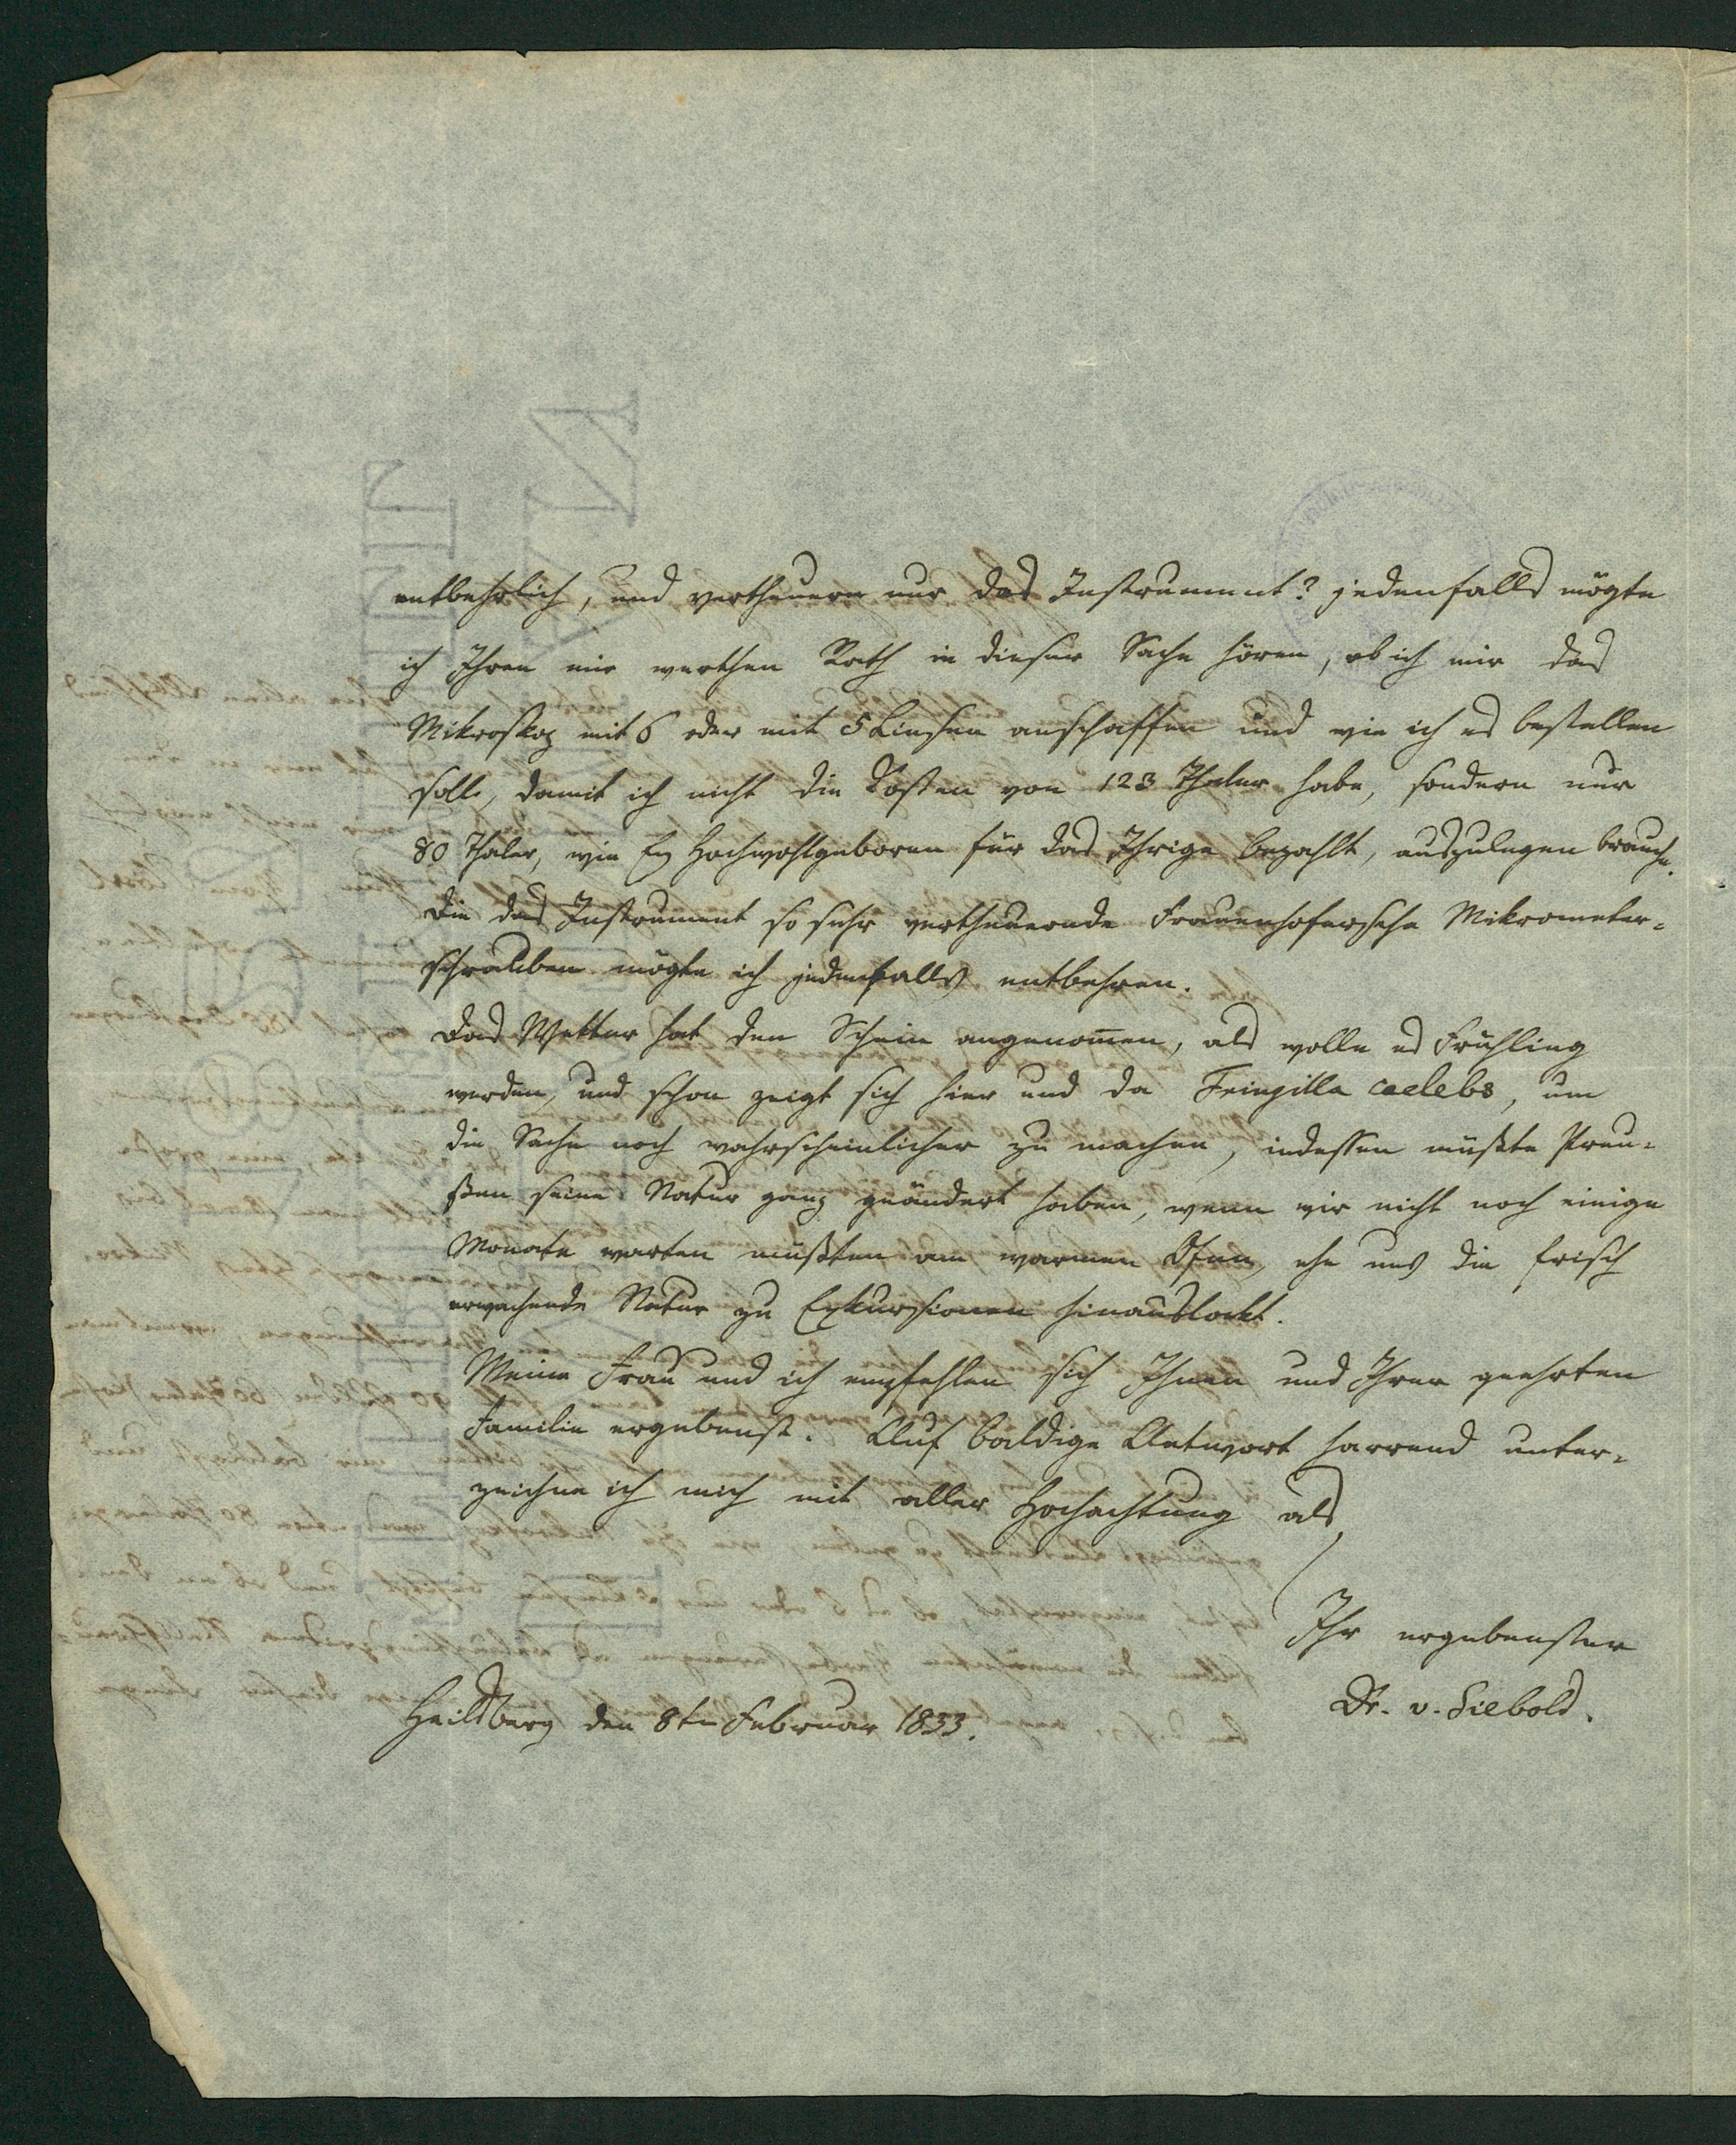 entbehrlich, und vertheuern nur das Instrument? jedenfalls mögte
ich Ihren mir werthen Rath in dieser Sache hören, ob ich mir das
Mikroskop mit 6 oder mit 5 Linsen anschaffen und wie ich es bestellen
solle, damit ich nicht die Kosten von 123 Thaler habe, sondern nur
80 Thaler, wie Ew Hochwohlgeboren für das Ihrige bezahlt, auszulegen brauche.
Die das Instrument so sehr vertheuernde Frauenhofersche Mikrometer-
schrauben mögte ich jedenfalls entbehren.
Das Wetter hat den Schein angenom̄en, als wolle es Frühling
werden, und schon zeigt sich hier und da Fringilla caelebs, um
die Sache noch wahrscheinlicher zu machen, indessen müßte Preu-
ßen seine Natur ganz geändert haben, wenn wir nicht noch einige
Monate warten müßten am warmen Ofen, ehe uns die frisch
erwachende Natur zu Exkursionen hinauslockt.
Meine Frau und ich empfehlen sich Ihnen und Ihrer geehrten
Familie ergebenst. Auf baldige Antwort harrend unter-
zeichne ich mich mit aller Hochachtung als
Ihr ergebenster
Dr. v. Siebold.
Heilsberg den 8ten Februar 1833.